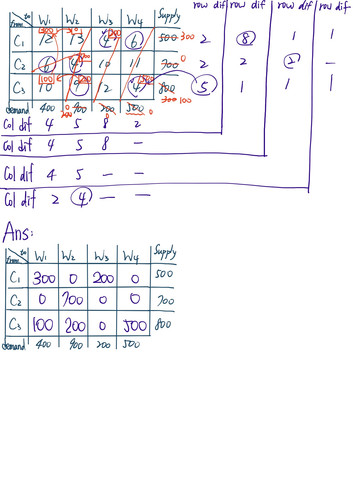 row dif row dif row dif row dif
to from W1 W2 W3 W4 Supply
C1 12 13 4 6 500 300 2 8 1 1
C2 6 4 10 11 700 0 2 2 2 —
C3 10 9 12 4 800 300 100 5 1 1 1
demand 400 900 200 500
Col dif 4 5 8 2
Col dif 4 5 8 —
Col dif 4 5 — —
Col dif 2 4 — —
Ans:
to from W1 W2 W3 W4 Supply
C1 300 0 200 0 500
C2 0 700 0 0 700
C3 100 200 0 500 800
demand 400 900 200 500